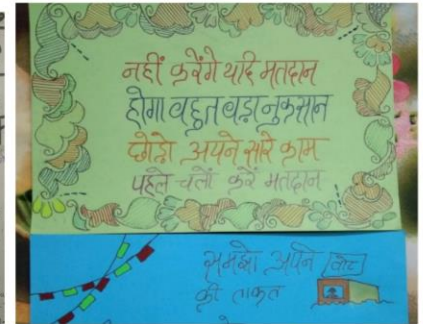 नहीं करेंगे यदि मतदान
होगा बहुत बड़ा नुकसान
छोड़ो अपने सारे काम
पहले चलों करें मतदान
समझो अपने वोट
की ताकत